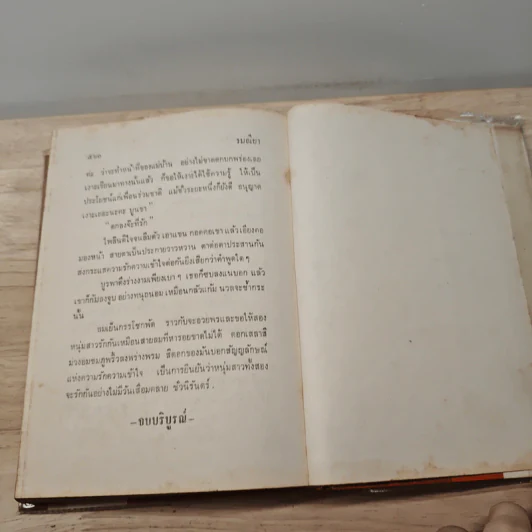 ๕๖๓ รมณียา
ค่ะ ว่าจะทำหน้าที่ของแม่บ้าน อย่างไม่ขาดตกบกพร่องเลย
เรารอเรียนมาทางนั้นแล้ว ก็ขอให้เราได้ใช้ความรู้ ให้เป็น
ประโยชน์แก่เพื่อนร่วมชาติ แม้ชั่วระยะหนึ่งก็ยังดี อนุญาต
เราเถอะนะคะ บูรพา"
"ตกลงจ้ะที่รัก"
ไพลินดีใจจนลืมตัว เอาแขน กอดคอเขา แล้วเอียงคอ
มองหน้า สายตาเป็นประกายวาวหวาน ตาต่อตาประสานกัน
ส่งกระแสความรักความเข้าใจต่อกันยิ่งเสียกว่าคำพูดใด ๆ
บูรพาดึงร่างงามเพียงเบา ๆ เธอก็ซบลงแนบอก แล้ว
เขาก็ก้มลงจูบ อย่างทนุถนอม เหมือนกลัวแก้ม นวลจะช้ำกระ
นั้น
ลมเย็นกรรโชกพัด ราวกับจะอวยพรและขอให้สอง
หนุ่มสาวรักกันเหมือนสายลมที่หารอยขาดไม่ได้ ดอกเสลาสี
ม่วงอมชมพูพริ้วลงพร่างพรม สีดอกของมันบอกสัญญลักษณ์
แห่งความรักความเข้าใจ เป็นการยืนยันว่าหนุ่มสาวทั้งสอง
จะรักกันอย่างไม่มีวันเสื่อมคลาย ชั่วนิรันดร์.
–จบบริบูรณ์–